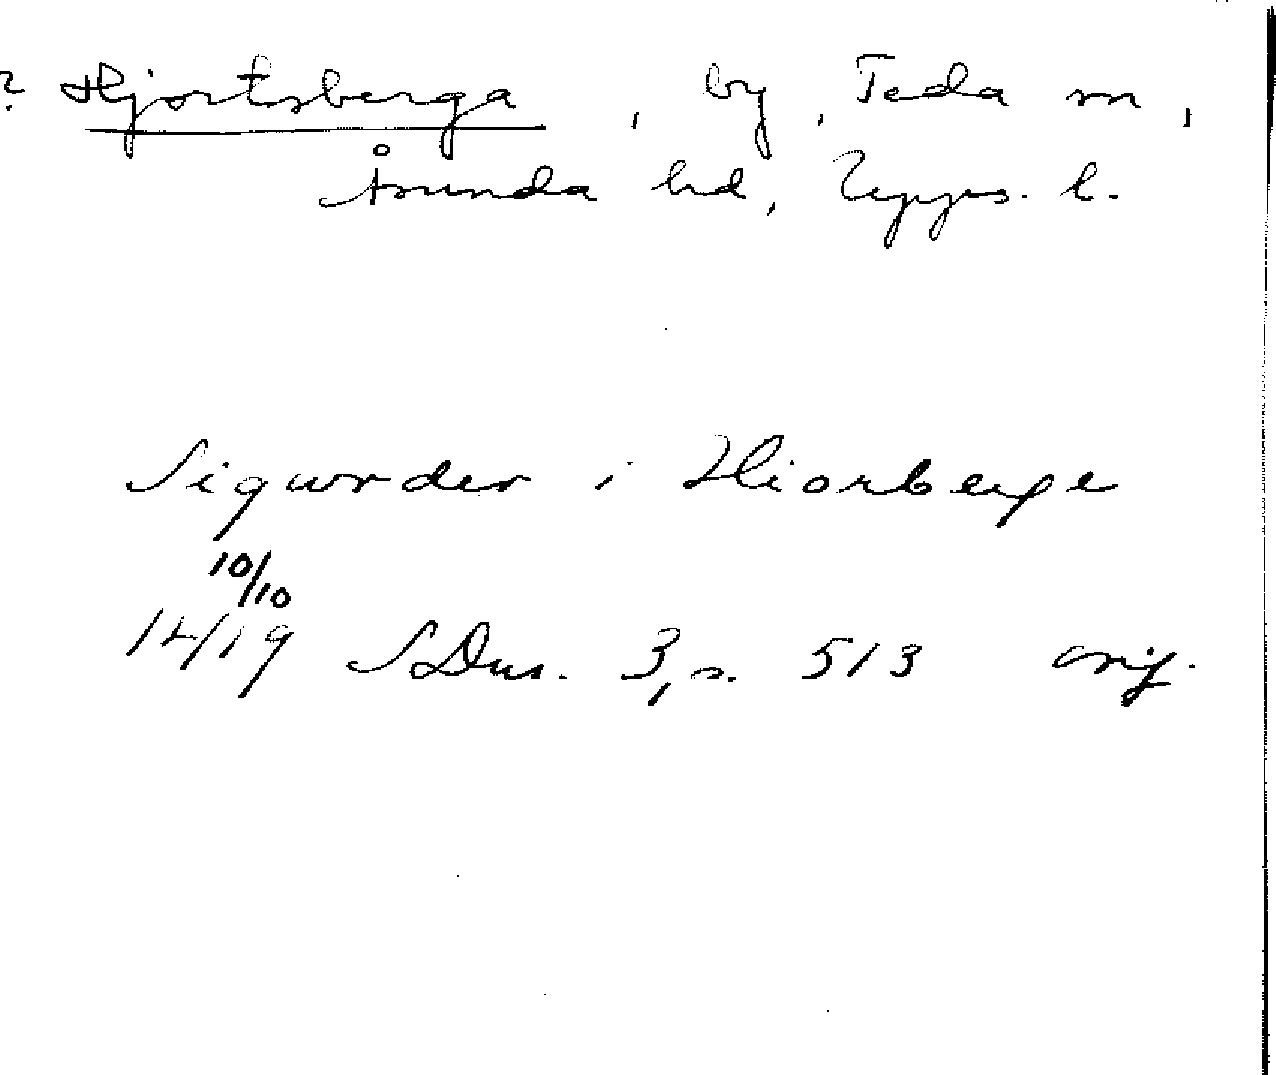 ? Hjortsberga, by, Teda sn,
Åsunda hd, Upps. l.
Sigwrder i Hiorberge
10/10
1419 SDns. 3, s. 513 orig.